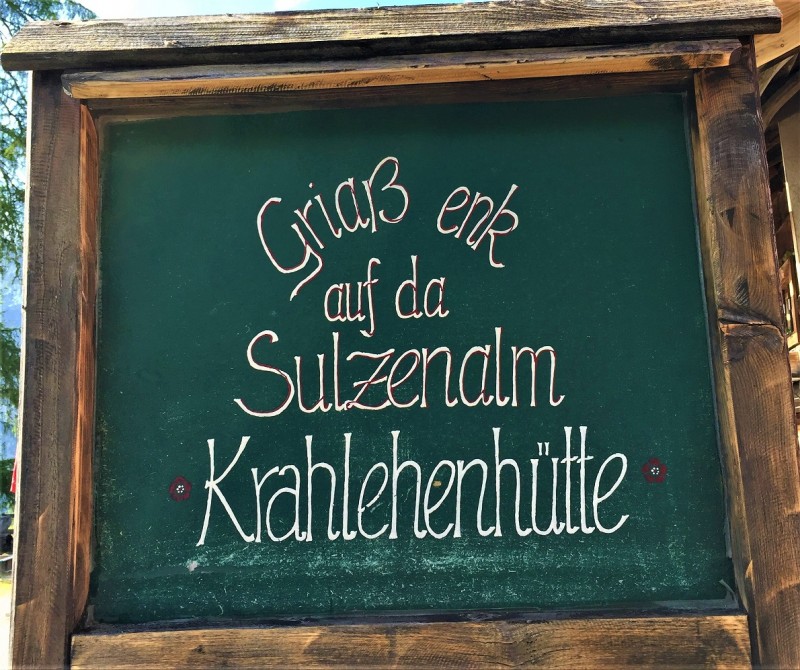 Griaß enk
auf da
Sulzenalm
Krahlehenhütte